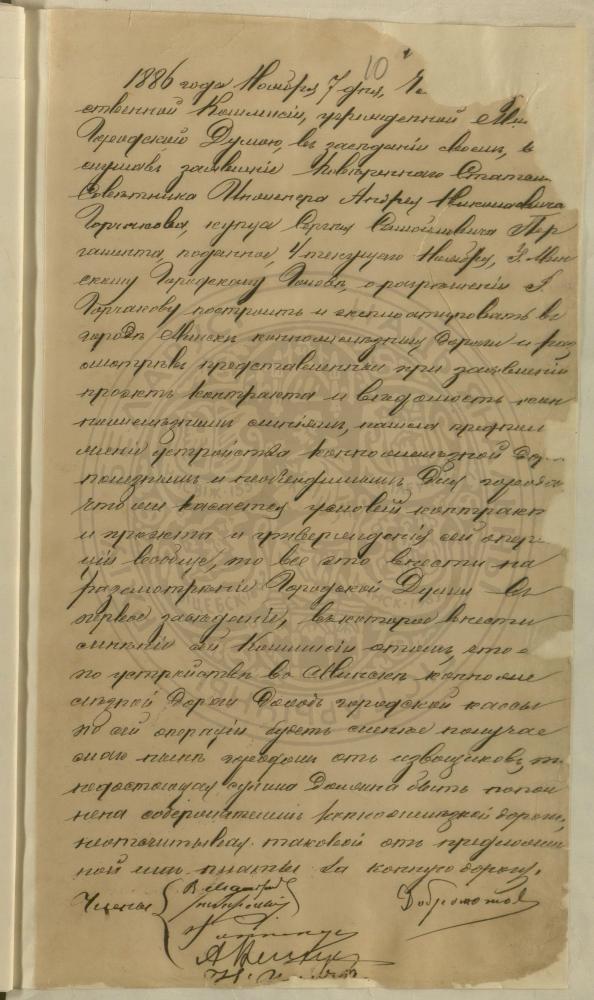 10
1886 года Ноября 7 дня,
ственной Коммисіи, учрежденной Мин
Городскою Думою, въ заседаніи своемъ, вы
слушавъ заявленіе повѣреннаго Статск.
Совѣтника Инженера Андрея
Горчакова, купца Сергея Самойловича Пер
гамента, поданное, 4 текущаго Ноября, Г. Мин
скому Городскому Головѣ, о разрешеніи Г.
Горчакову построить и эксплоатировать въ
городѣ Минскѣ конножелезную дорогу и раз
смотрѣвъ представленные при заявленіи
проэктъ контракта и вѣдомость
линіямъ, нашла
устройства конножелезной до
полезнымъ и необходимымъ для города
что же касается условій контракт
и проэкта и утвержденія сей опера
ціи вообще, то все это внести на
разсмотрѣніе Городской Думы въ
первое заседаніе, въ которое внести
мнѣніе сей Коммисіи о томъ, что
по устройствѣ въ Минскѣ конножеле
зной дороги доходъ городской кассы
по сей операціи будетъ менѣе получае
маго нынѣ городомъ отъ извощиковъ, то
недостающая сумма должна быть попол
нена содержателемъ конножелезной дороги,
таковой отъ
ной имъ платы за конную дорогу.
Члены